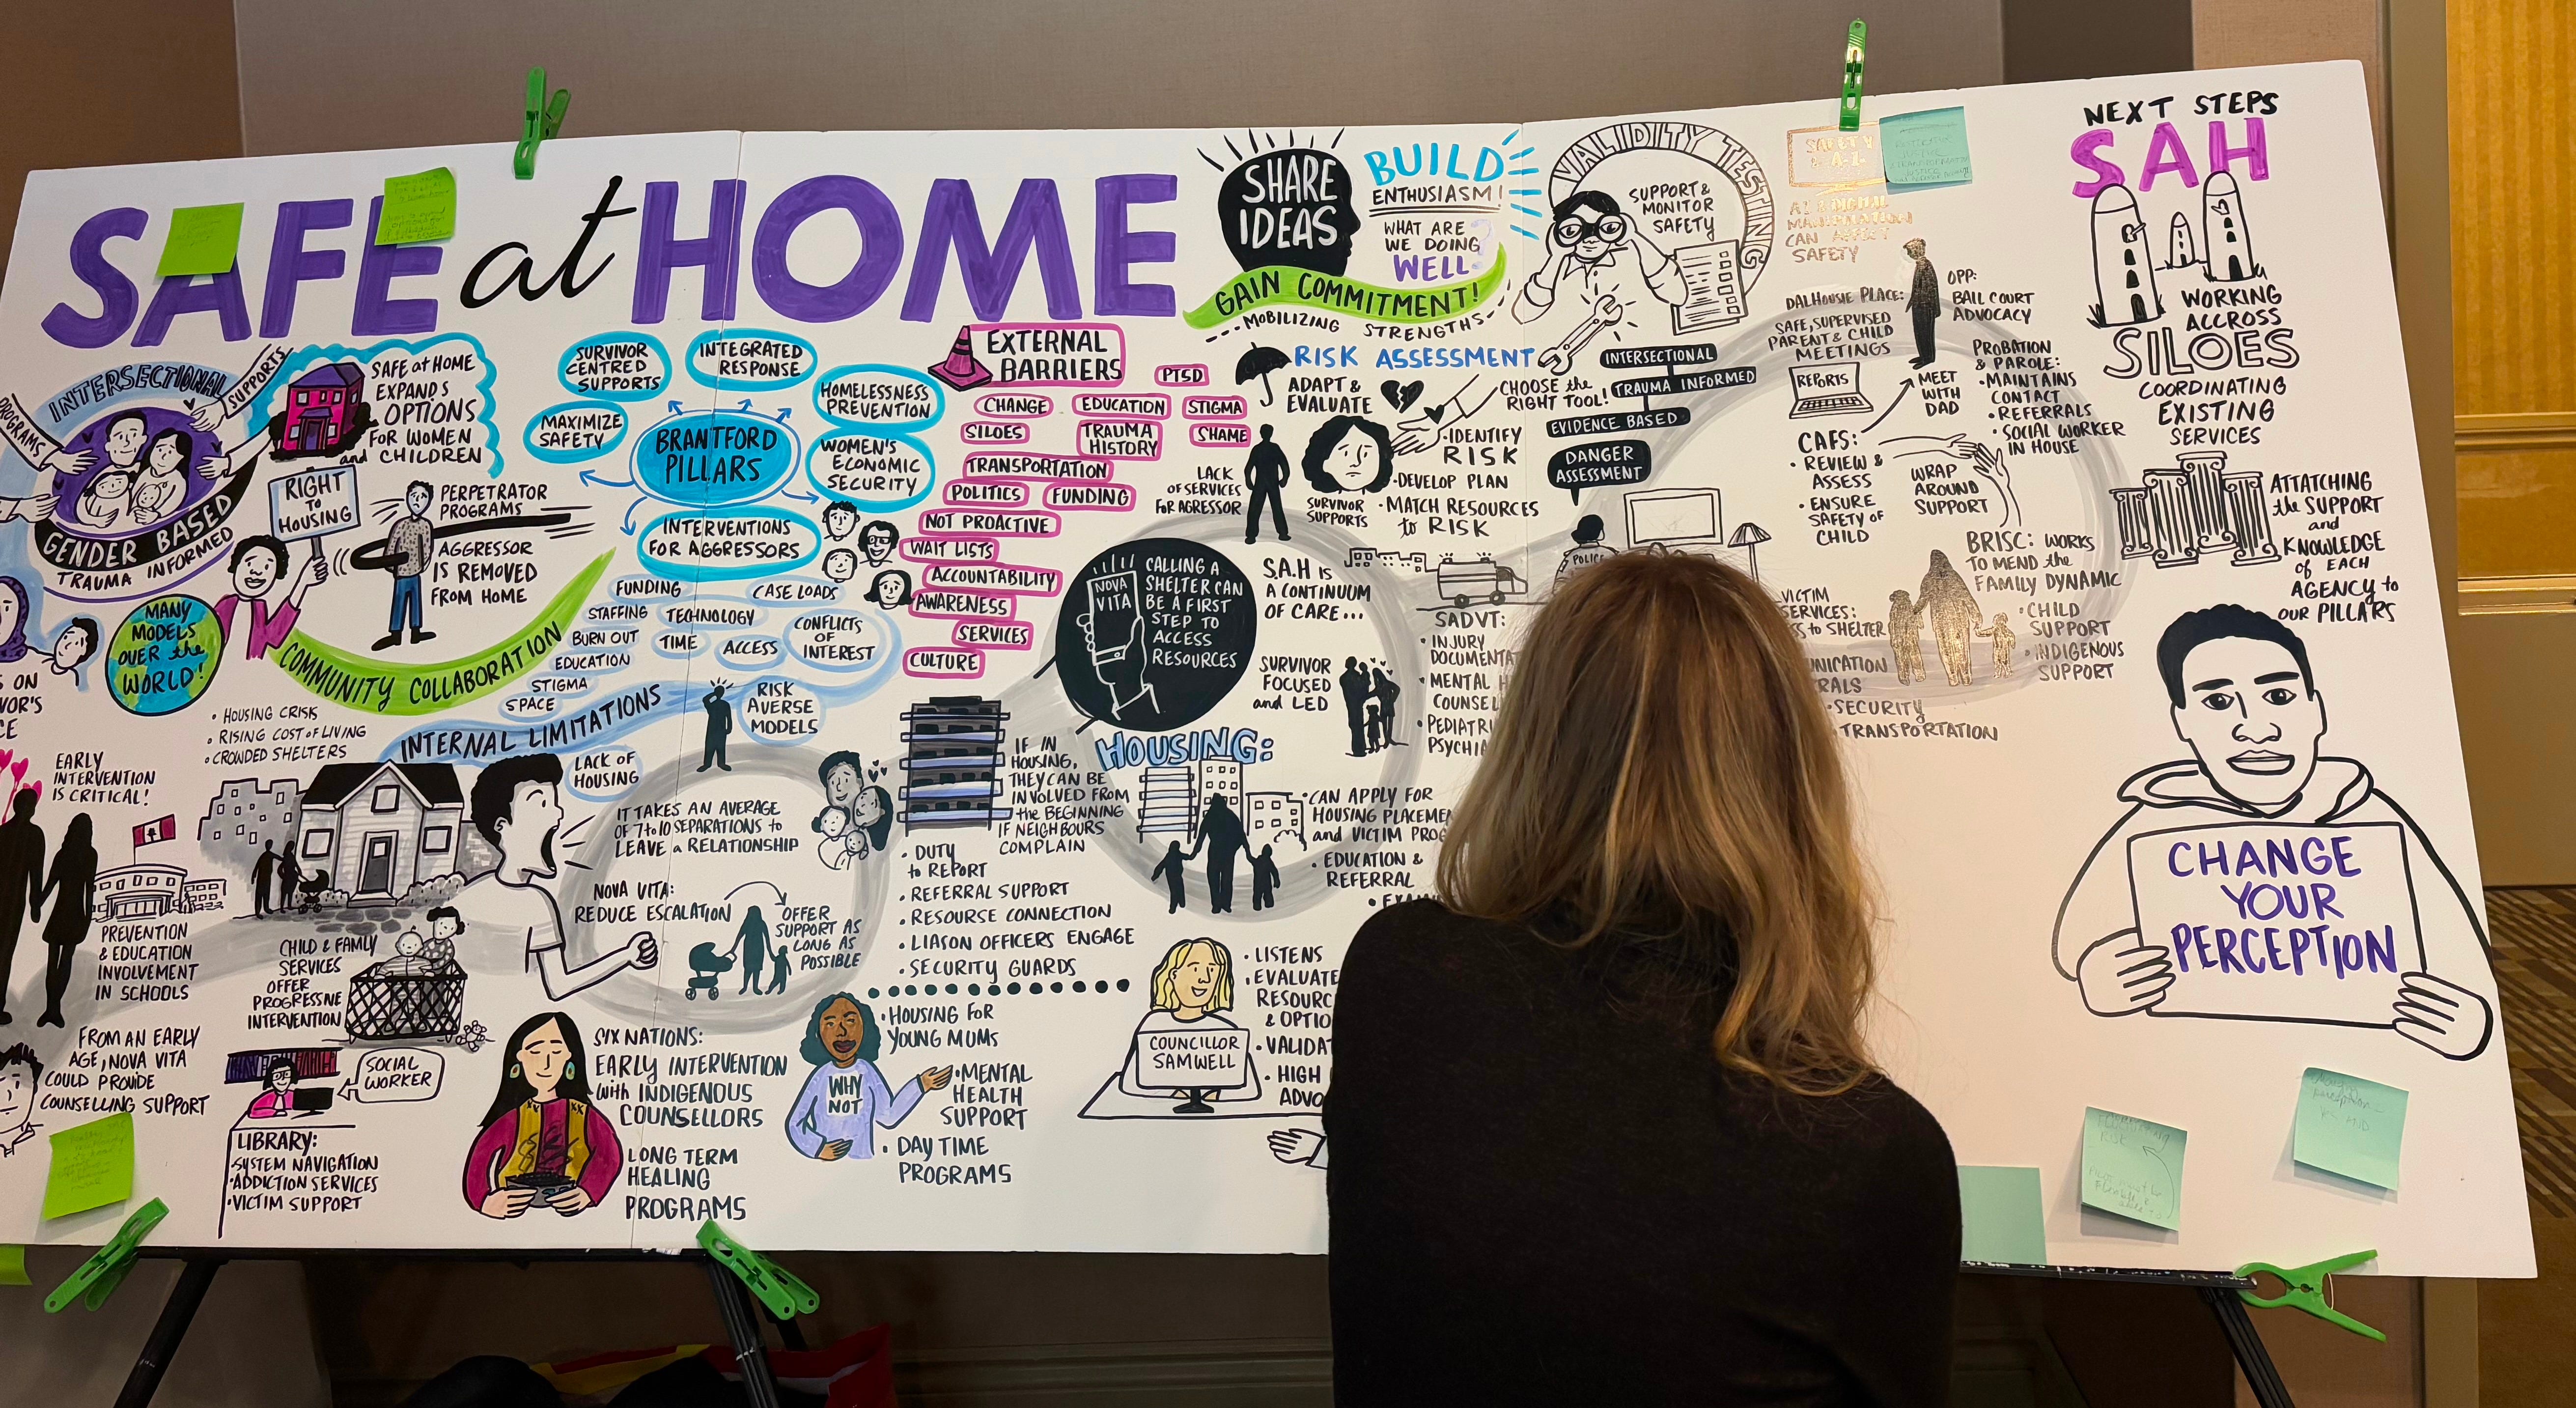 SAFE at HOME
INTERSECTIONAL
PROGRAMS
SUPPORTS
GENDER BASED
TRAUMA INFORMED
SAFE at HOME
EXPANDS
OPTIONS
FOR WOMEN
and CHILDREN
RIGHT
TO
HOUSING
PERPETRATOR
PROGRAMS
AGGRESSOR
IS REMOVED
FROM HOME
MANY
MODELS
OVER the
WORLD!
COMMUNITY COLLABORATION
ON
• HOUSING CRISIS
• RISING COST of LIVING
• CROWDED SHELTERS
EARLY
INTERVENTION
IS CRITICAL!
PREVENTION
& EDUCATION
INVOLVEMENT
IN SCHOOLS
FROM AN EARLY
AGE, NOVA VITA
COULD PROVIDE
COUNSELLING SUPPORT
CHILD & FAMLY
SERVICES
OFFER
PROGRESSIVE
INTERVENTION
SOCIAL
WORKER
LIBRARY:
•SYSTEM NAVIGATION
•ADDICTION SERVICES
•VICTIM SUPPORT
SURVIVOR
CENTRED
SUPPORTS
INTEGRATED
RESPONSE
MAXIMIZE
SAFETY
BRANTFORD
PILLARS
HOMELESSNESS
PREVENTION
WOMEN'S
ECONOMIC
SECURITY
INTERVENTIONS
FOR AGGRESSORS
FUNDING
CASE LOADS
STAFFING
TECHNOLOGY
BURN OUT
TIME
ACCESS
CONFLICTS
OF
INTEREST
EDUCATION
STIGMA
SPACE
INTERNAL LIMITATIONS
RISK
AVERSE
MODELS
LACK OF
HOUSING
IT TAKES AN AVERAGE
OF 7 to 10 SEPARATIONS to
LEAVE a RELATIONSHIP
NOVA VITA:
REDUCE ESCALATION
OFFER
SUPPORT AS
LONG AS
POSSIBLE
SIX NATIONS:
EARLY INTERVENTION
with INDIGENOUS
COUNSELLORS
LONG TERM
HEALING
PROGRAMS
EXTERNAL
BARRIERS
PTSD
CHANGE
EDUCATION
STIGMA
SILOES
TRAUMA
HISTORY
SHAME
TRANSPORTATION
POLITICS
FUNDING
NOT PROACTIVE
WAIT LISTS
ACCOUNTABILITY
AWARENESS
SERVICES
CULTURE
IF IN
HOUSING,
THEY CAN BE
INVOLVED FROM
the BEGINNING
IF NEIGHBOURS
COMPLAIN
• DUTY
to REPORT
• REFERRAL SUPPORT
• RESOURSE CONNECTION
• LIASON OFFICERS ENGAGE
• SECURITY GUARDS
WHY
NOT
• HOUSING FOR
YOUNG MUMS
• MENTAL
HEALTH
SUPPORT
• DAY TIME
PROGRAMS
SHARE
IDEAS
BUILD
ENTHUSIASM!
WHAT ARE
WE DOING
WELL?
GAIN COMMITMENT!
MOBILIZING STRENGTHS
RISK ASSESSMENT
ADAPT &
EVALUATE
CHOOSE the
RIGHT TOOL!
LACK
OF SERVICES
FOR AGRESSOR
SURVIVOR
SUPPORTS
• IDENTIFY
RISK
• DEVELOP PLAN
• MATCH RESOURCES
to RISK
NOVA
VITA
CALLING A
SHELTER CAN
BE A FIRST
STEP TO
ACCESS
RESOURCES
S.A.H IS
A CONTINUUM
OF CARE...
SURVIVOR
FOCUSED
and LED
SADVT:
• INJURY
DOCUMENTA
• MENTAL H
COUNSEL
• PEDIATRI
PSYCHIA
HOUSING:
• CAN APPLY FOR
HOUSING PLACEME
and VICTIM PROG
• EDUCATION &
REFERRAL
COUNCILLOR
SAMWELL
• LISTENS
• EVALUATE
RESOURC
& OPTIO
• VALIDAT
• HIGH
ADVO
VALIDITY TESTING
SUPPORT &
MONITOR
SAFETY
INTERSECTIONAL
TRAUMA INFORMED
EVIDENCE BASED
DANGER
ASSESSMENT
POLICE
SAFETY
CAN AFFECT
SAFETY
DALHOUSIE PLACE:
SAFE, SUPERVISED
PARENT & CHILD
MEETINGS
OPP:
BAIL COURT
ADVOCACY
REPORTS
MEET
WITH
DAD
PROBATION
& PAROLE:
• MAINTAINS
CONTACT
• REFERRALS
• SOCIAL WORKER
IN HOUSE
CAFS:
• REVIEW &
ASSESS
• ENSURE
SAFETY OF
CHILD
WRAP
AROUND
SUPPORT
BRISC: WORKS
TO MEND the
FAMILY DYNAMIC
• CHILD
SUPPORT
• INDIGENOUS
SUPPORT
VICTIM
SERVICES:
to SHELTER
• SECURITY
• TRANSPORTATION
NEXT STEPS
SAH
WORKING
ACCROSS
SILOES
COORDINATING
EXISTING
SERVICES
ATTATCHING
the SUPPORT
and
KNOWLEDGE
of EACH
AGENCY to
OUR PILLARS
CHANGE
YOUR
PERCEPTION